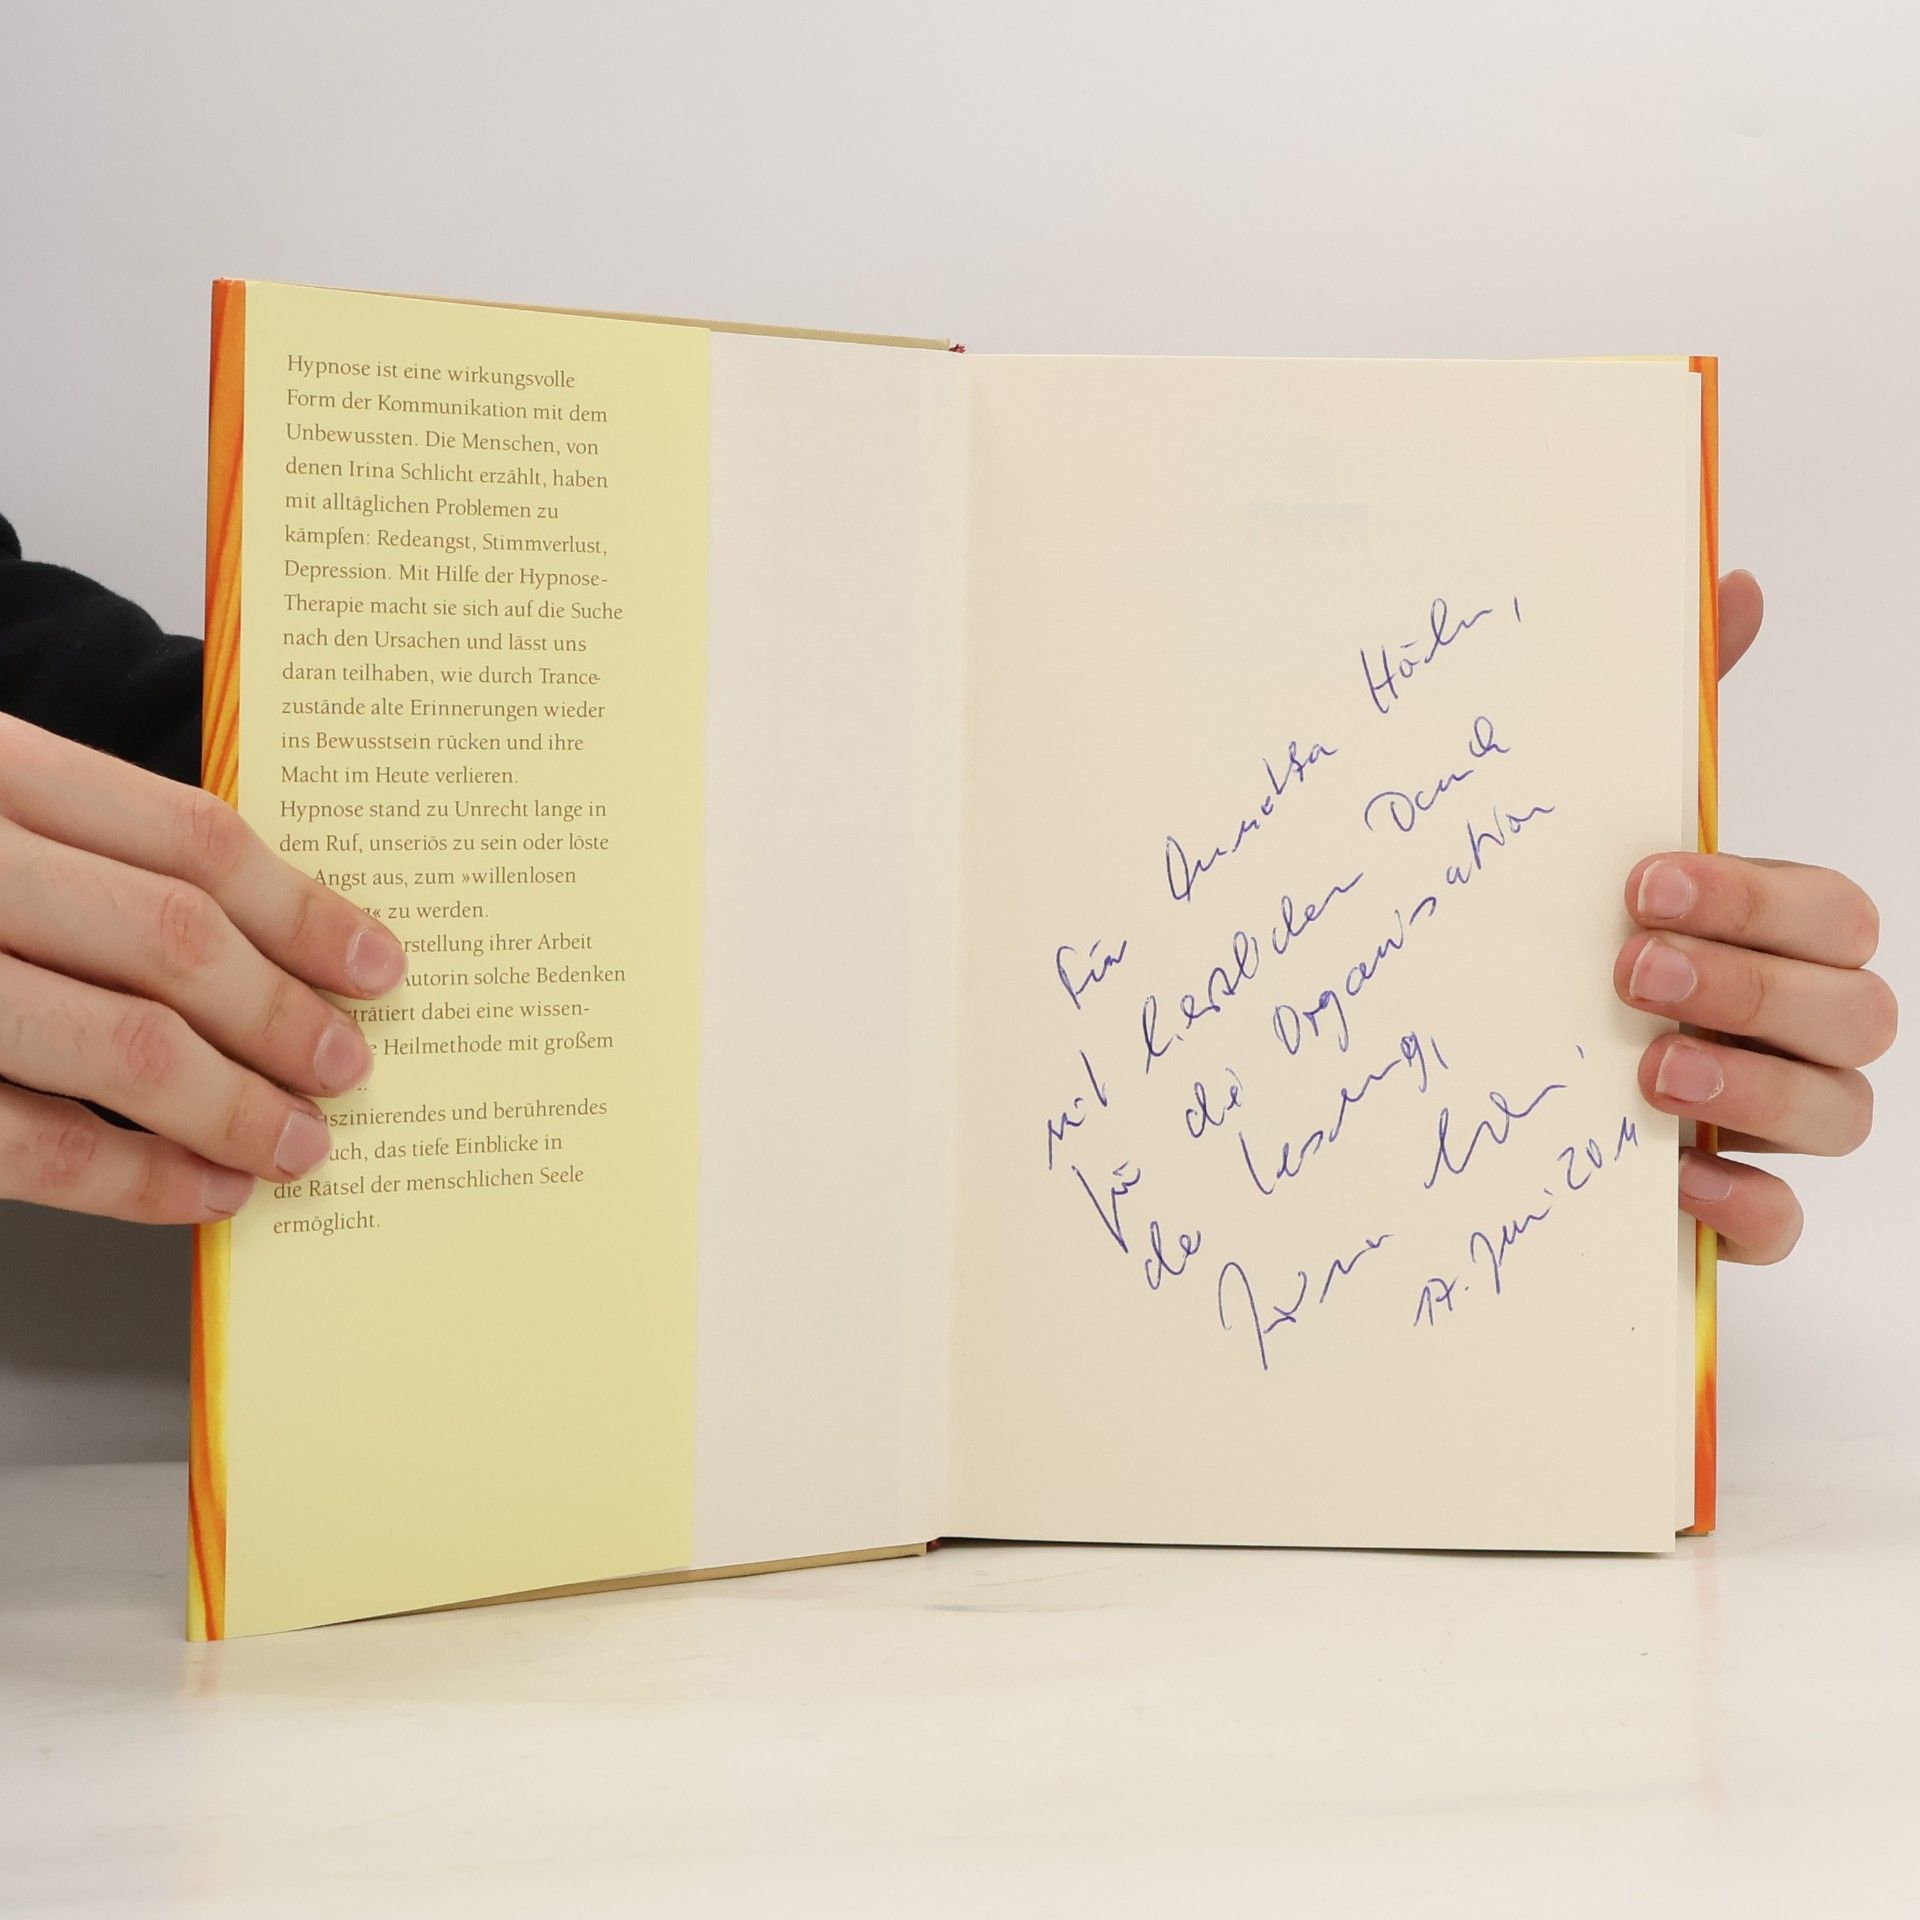 Hypnose ist eine wirkungsvolle
Form der Kommunikation mit dem
Unbewussten. Die Menschen, von
denen Irina Schlicht erzählt, haben
mit alltäglichen Problemen zu
kämpfen: Redeangst, Stimmverlust,
Depression. Mit Hilfe der Hypnose-
Therapie macht sie sich auf die Suche
nach den Ursachen und lässt uns
daran teilhaben, wie durch Trance-
zustände alte Erinnerungen wieder
ins Bewusstsein rücken und ihre
Macht im Heute verlieren.
Hypnose stand zu Unrecht lange in
dem Ruf, unseriös zu sein oder löste
Angst aus, zum »willenlosen
zu werden.
ihrer Arbeit
solche Bedenken
dabei eine wissen-
Heilmethode mit großem
und berührendes
das tiefe Einblicke in
die Rätsel der menschlichen Seele
ermöglicht.
Für
mit herzlichem Dank
für die Organisation
der Lesung,
17. Juni 2011